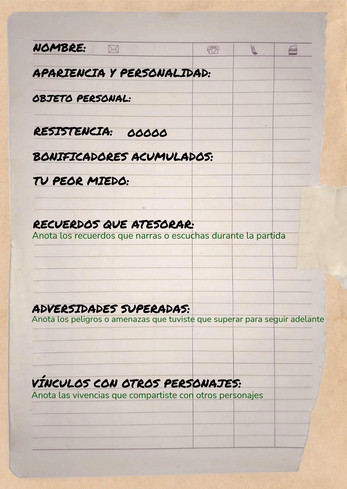 NOMBRE:
APARIENCIA Y PERSONALIDAD:
OBJETO PERSONAL:
RESISTENCIA: OOOOO
BONIFICADORES ACUMULADOS:
TU PEOR MIEDO:
RECUERDOS QUE ATESORAR:
Anota los recuerdos que narras o escuchas durante la partida
ADVERSIDADES SUPERADAS:
Anota los peligros o amenazas que tuviste que superar para seguir adelante
VÍNCULOS CON OTROS PERSONAJES:
Anota las vivencias que compartiste con otros personajes